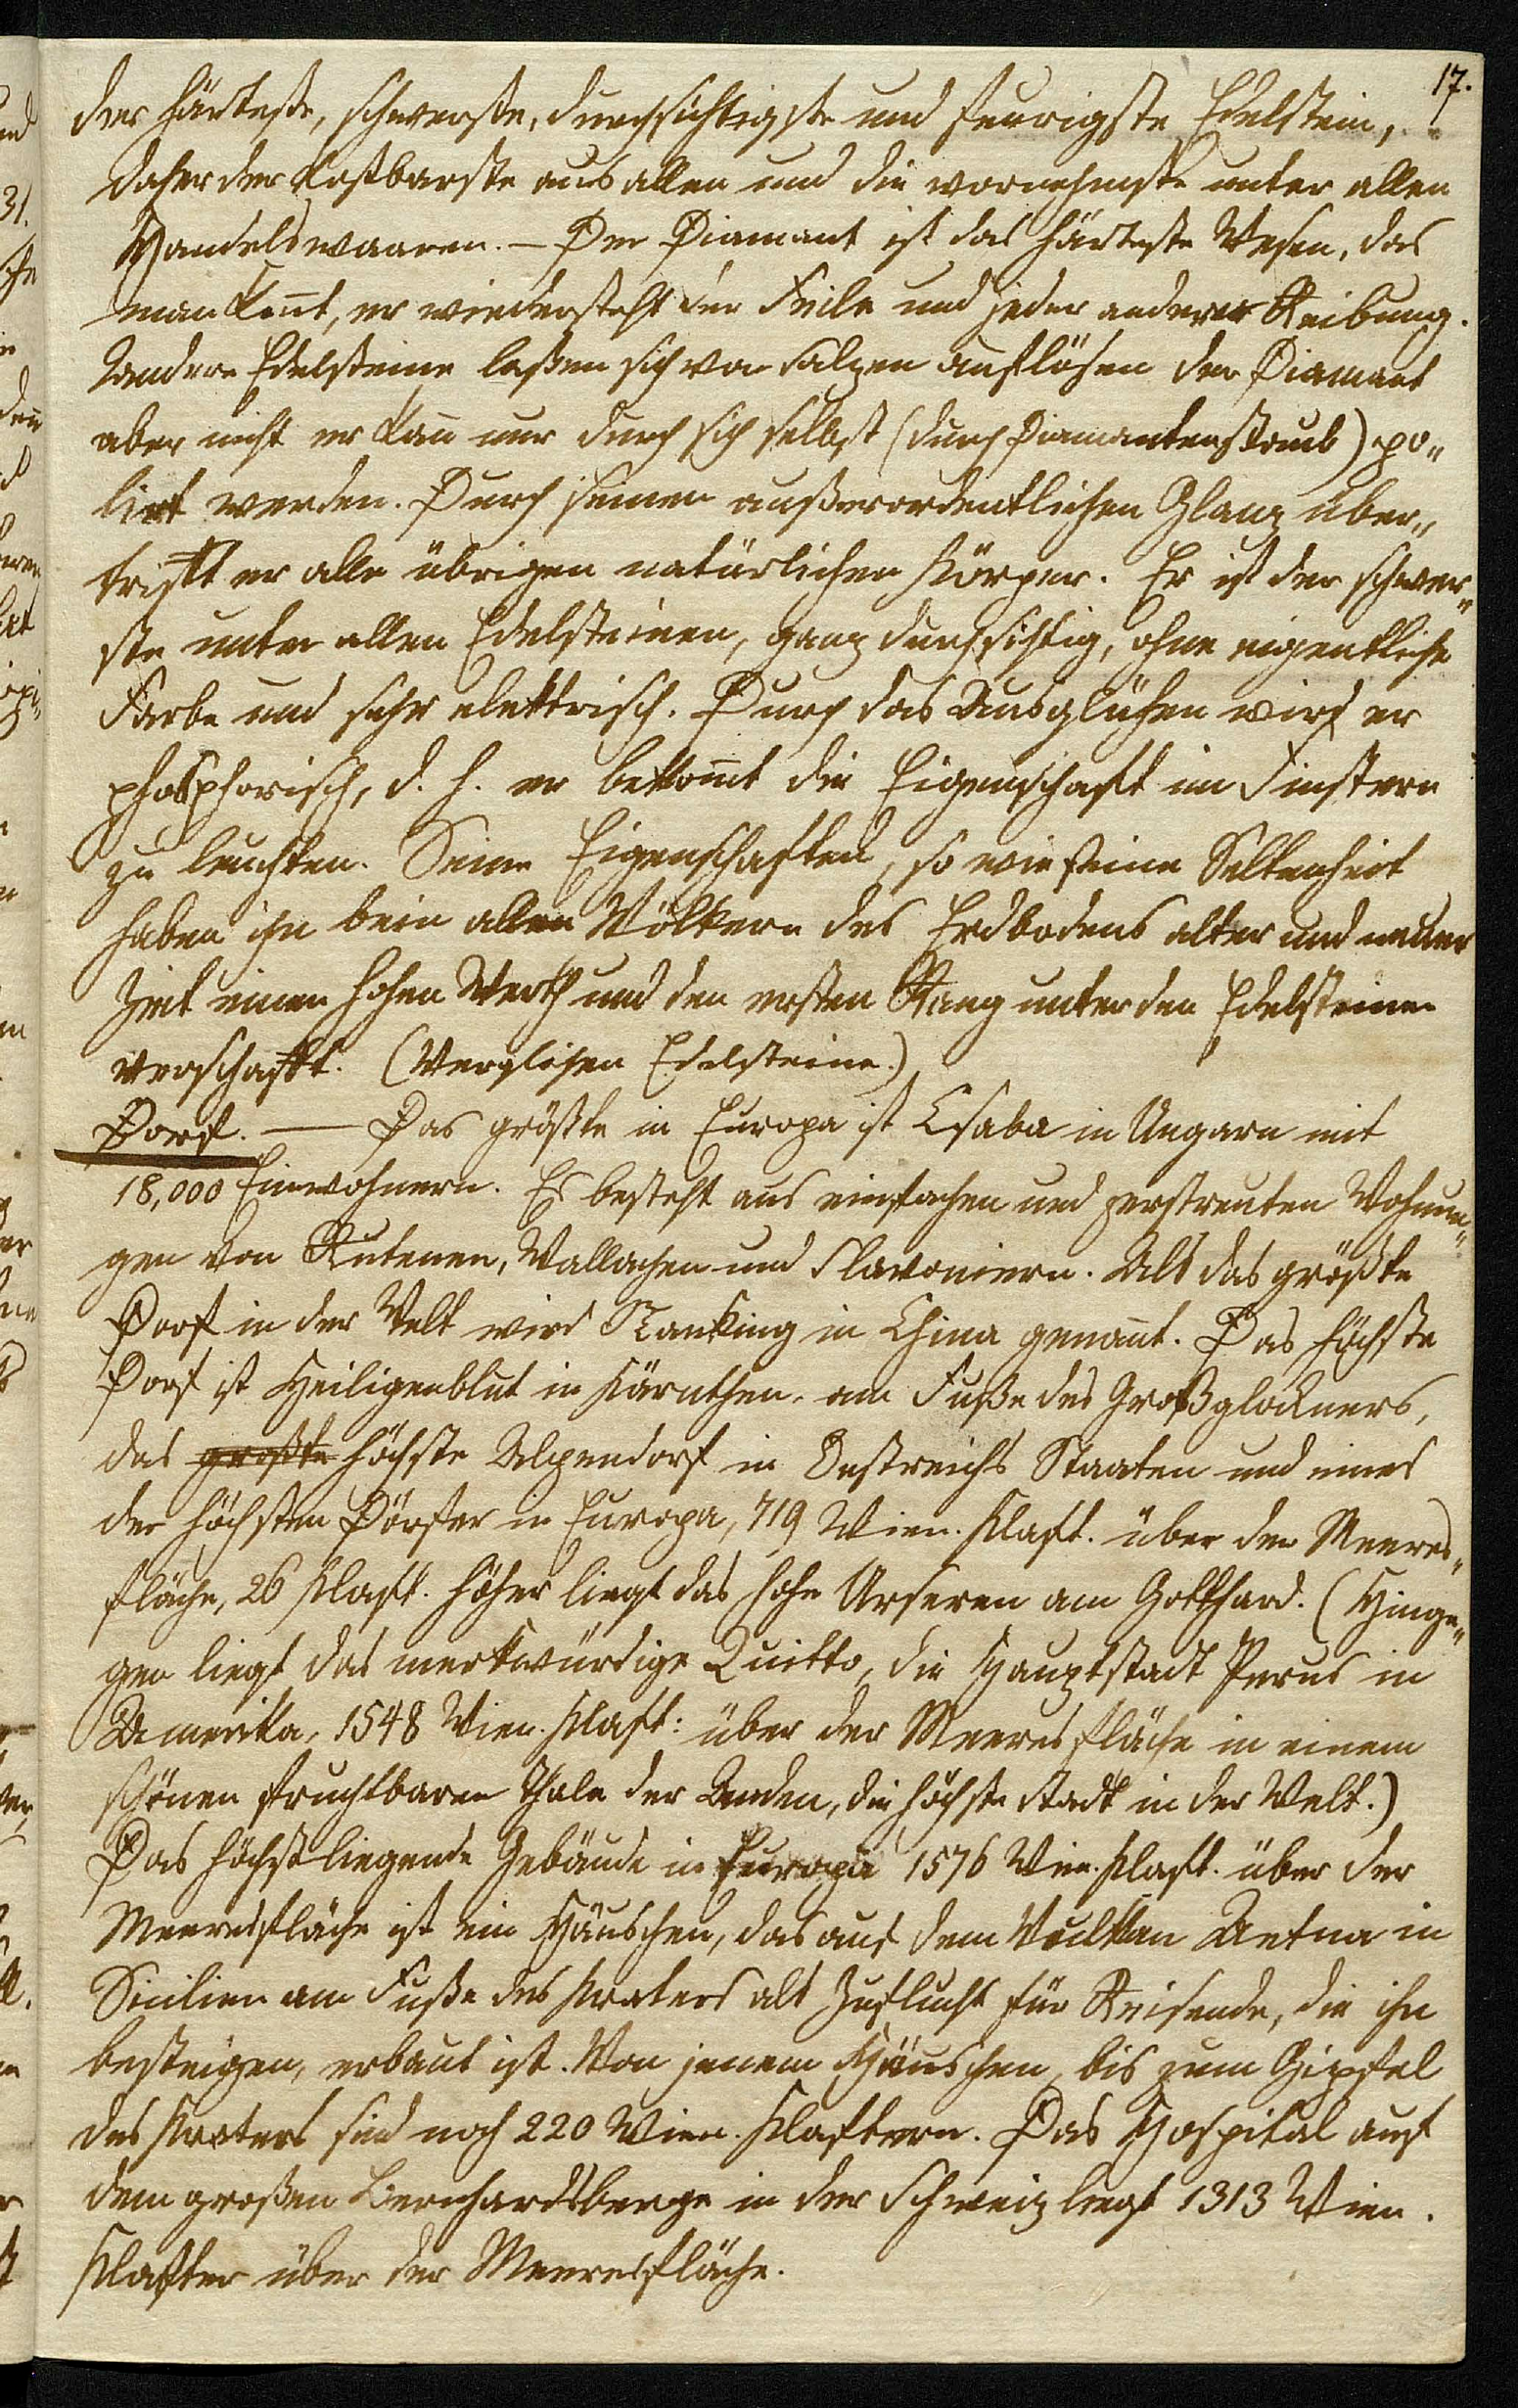 17.
der härteste, schwerste, durchsichtigste und feurigste Edelstein,
daher der kostbarste aus allen und die vornehmste unter allen
Handelswaaren. – Der Diamant ist das härteste Wesen, das
man kennt, er wiedersteht der Feile und jeder anderer Reibung.
Andere Edelsteine laßen sich von Salzen auflösen der Diamant
aber nicht er kann nur durch sich selbst (durch Diamantenstaub) po„
lirt werden. Durch seinen außerordentlichen Glanz über„
trifft er alle übrigen natürlichen Körper. Er ist der schwer„
ste unter allen Edelsteinen, ganz durchsichtig, ohne eigentliche
Farbe und sehr elektrisch. Durch das Ausglühen wird er
phosphorisch, d. h. er bekommt die Eigenschaft im Finstern
zu leuchten. Seine Eigenschaften, so wie seine Seltenheit
haben ihn bein allen Völkern des Erdbodens alter und neuer
Zeit einen hohen Werth und den ersten Rang unter den Edelsteinen
verschafft. (Verglichen Edelsteine.)
Dorf. — Das größte in Europa ist Csaba in Ungarn mit
18,000 Einwohnern. Es besteht aus einfachen und zerstreuten Wohnun„
gen von Rutenen, Wallachen und Slavoniern. Als das größte
Dorf in der Welt wird Nanking in China genannt. Das höchste
Dorf ist Heiligenblut in Kärnthen, am Fuße des Großglockners,
das größte höchste Alpendorf in Oestreichs Staaten und eines
der höchsten Dörfer in Europa, 719 Wien. Klaft. über der Meeres„
fläche, 26 Klaft. höher liegt das hohe Urseren am Gotthard. (Hinge„
gen liegt das merkwürdige Quitto, die Hauptstadt Perus in
Amerika, 1548 Wien. Klaft: über der Meeresfläche in einem
schönen fruchtbaren Thale der Anden, die höchste Stadt in der Welt.)
Das höchstliegende Gebäude in Europa 1576 Wien. Klaft. über der
Meeresfläche ist ein Häuschen, das auf dem Vulkan Aetna in
Sicilien am Fuße des Kraters als Zuflucht für Reisende, die ihn
besteigen, erbaut ist. Von jenem Häuschen bis zum Gipfel
des Kraters sind noch 220 Wien. Klaftern. Das Hospital auf
dem großen Bernhardsberge in der Schweiz liegt 1313 Wien.
Klafter über der Meeresfläche.